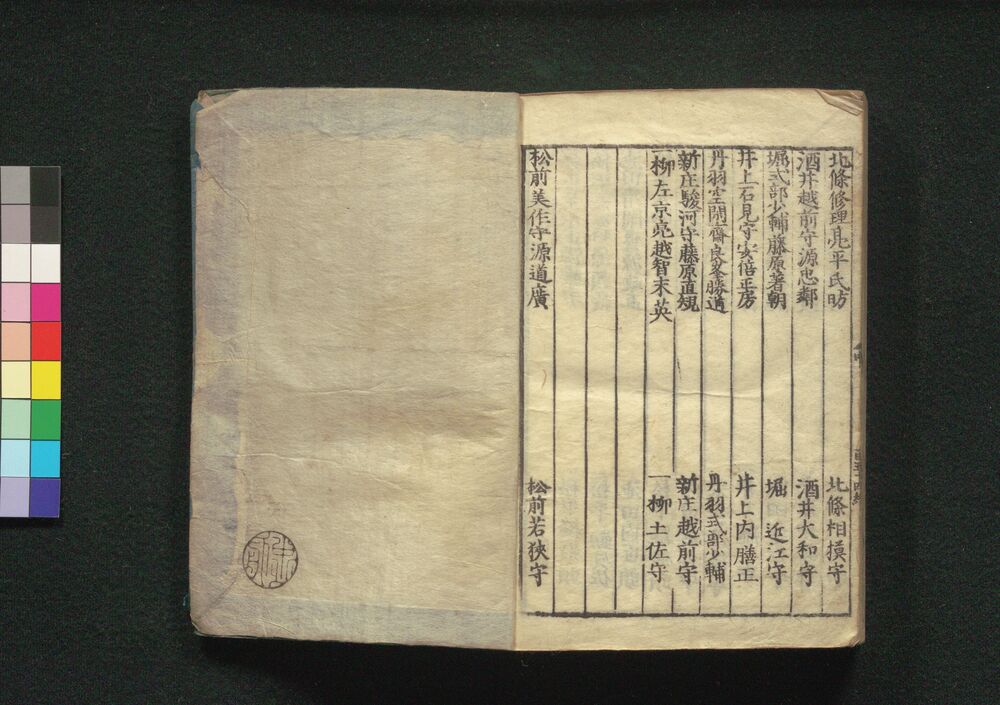 北條修理亮平氏昉 北條相摸守
酒井越前守源忠鄰 酒井大和守
堀式部少輔藤原著朝 堀近江守
井上石見守安倍正房 井上内膳正
丹羽空閑齋良峯勝道 丹羽式部少輔
新庄駿河守藤原直規 新庄越前守
一柳左京亮越智末英 一柳土佐守
松前美作守源道廣 松前若狹守